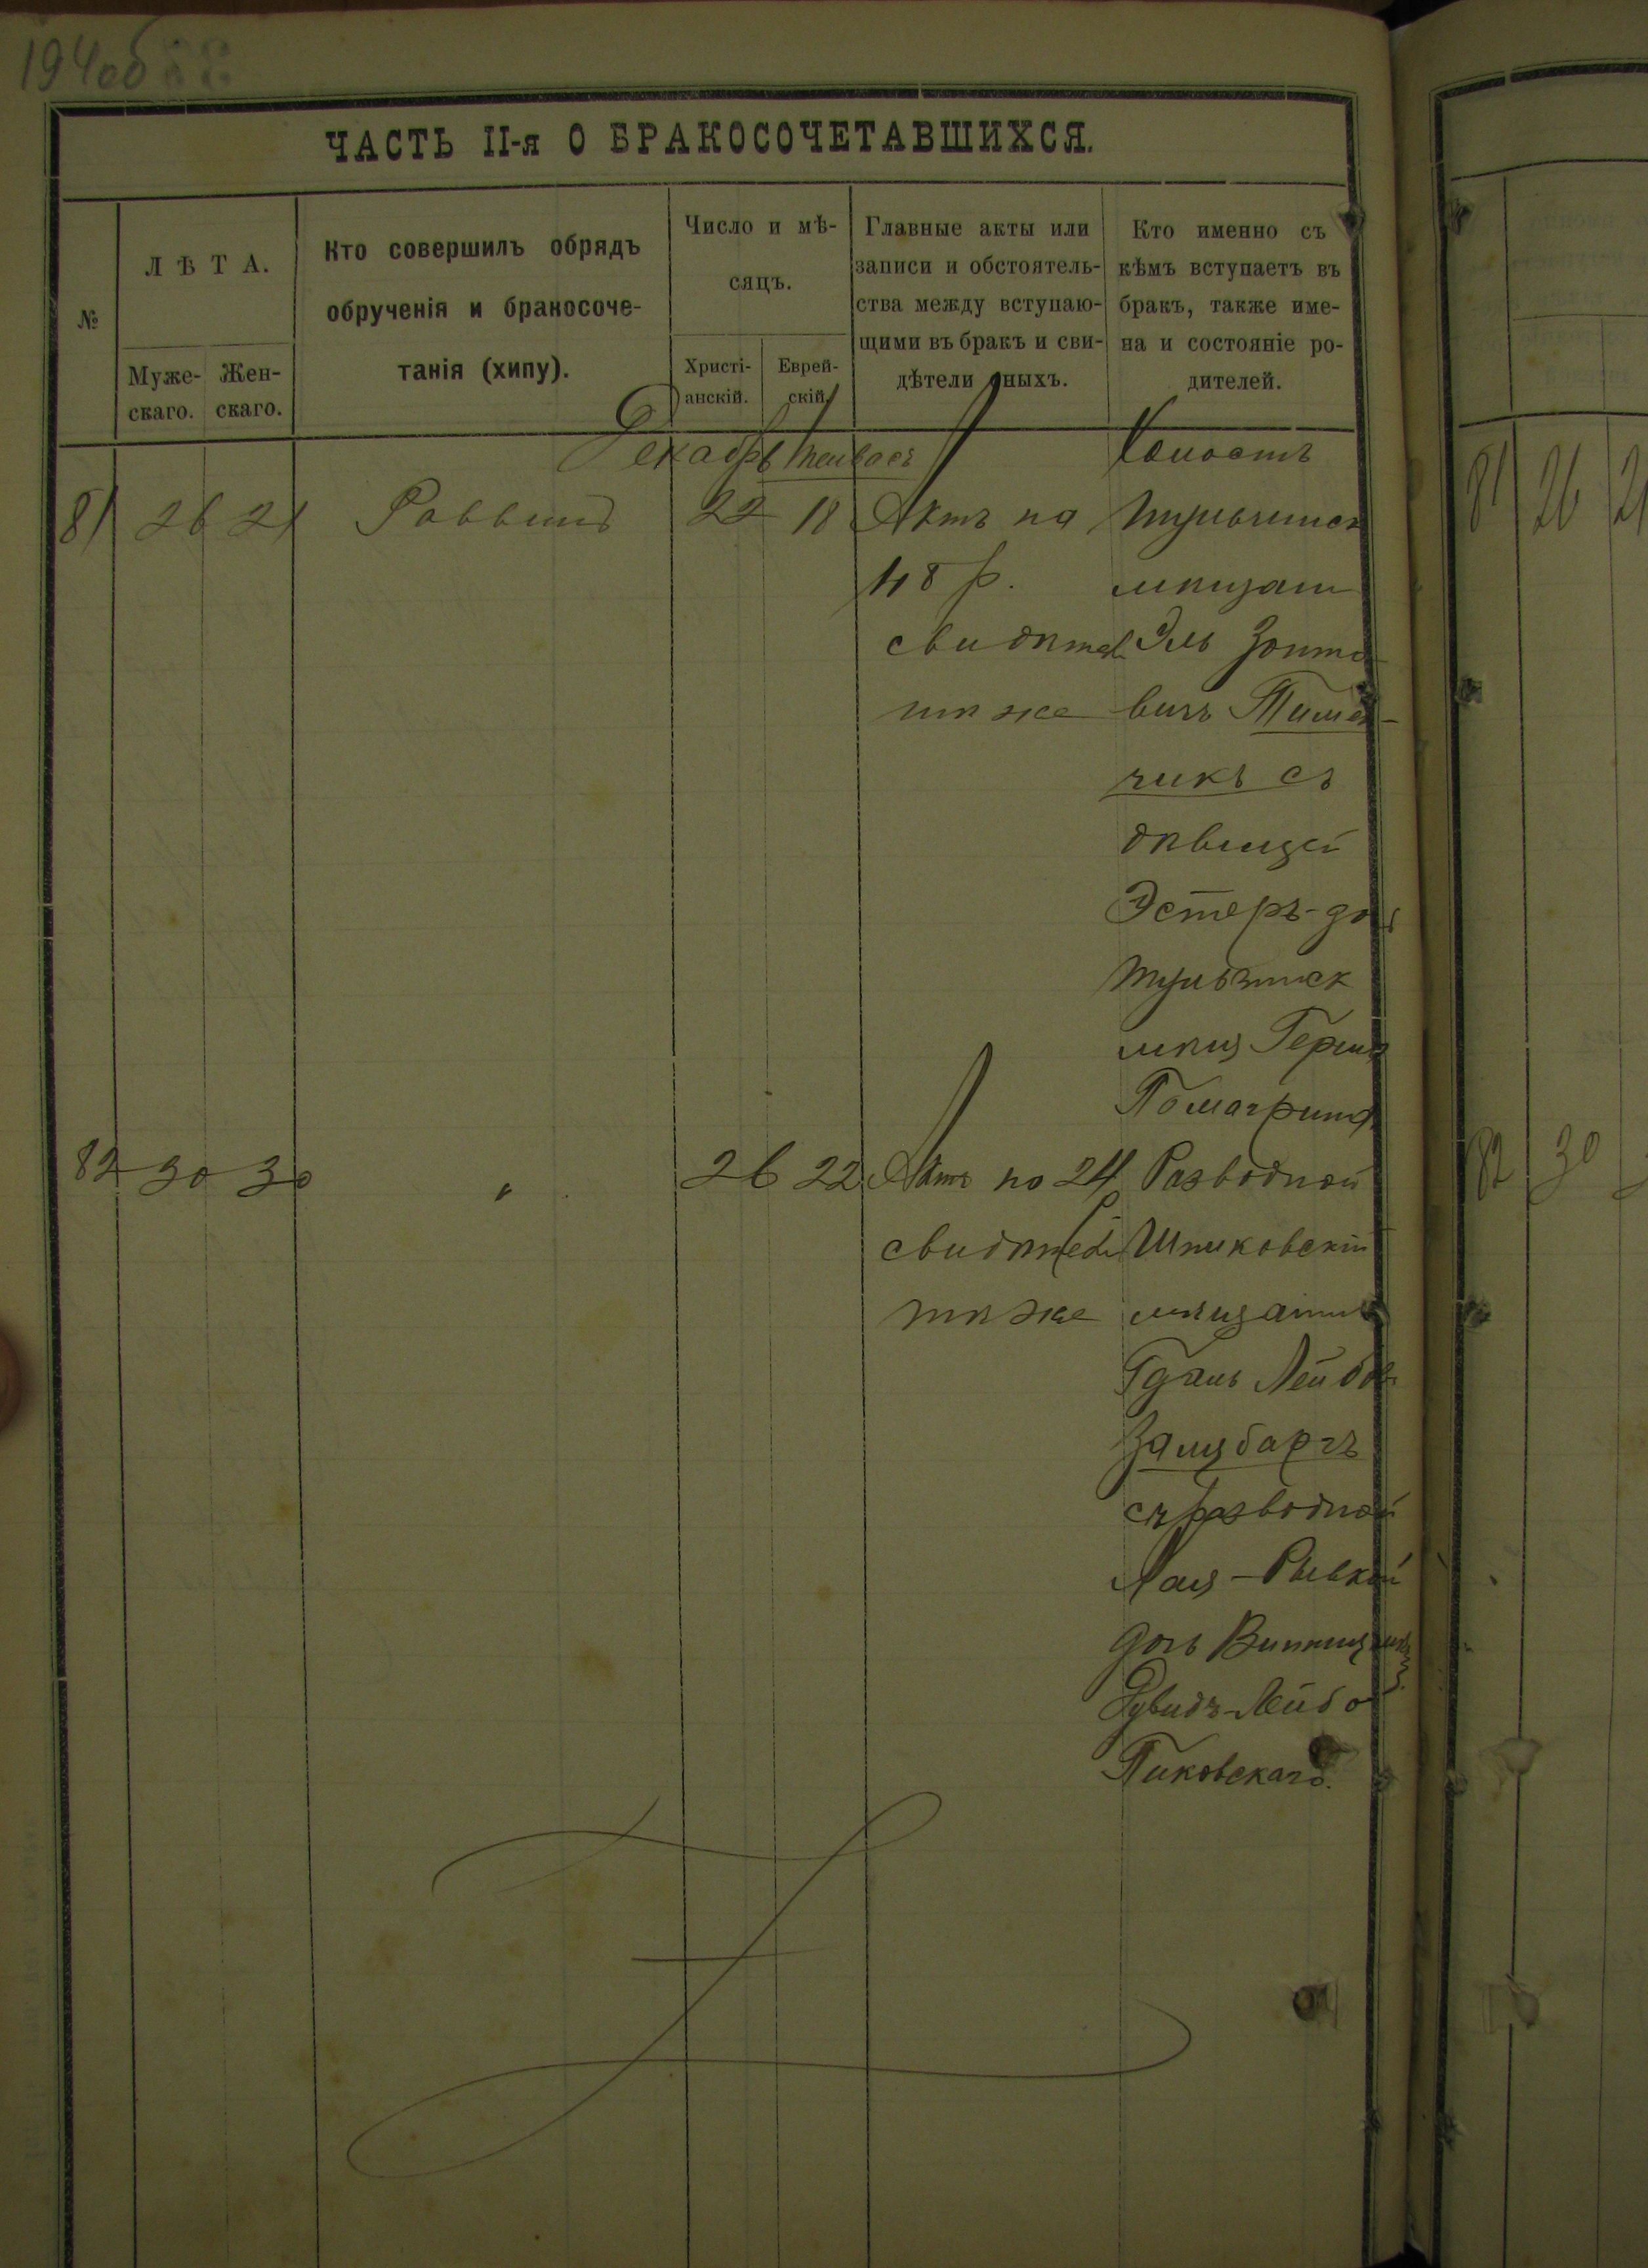 194об
ЧАСТЬ II-я О БРАКОСОЧЕТАВШИХСЯ.
№
ЛѢТА.
Муже-
скаго.
Жен-
скаго.
Кто совершилъ обрядъ
обрученія и бракосоче-
танія (хипу).
Число и мѣ-
сяцъ.
Христі-
анскій.
Еврей-
скій.
Главные акты или
записи и обстоятель-
ства между вступаю-
щими въ бракъ и сви-
дѣтели оныхъ.
Кто именно съ
кѣмъ вступаетъ въ
бракъ, также име-
на и состояніе ро-
дителей.
Декабрь Тейвесъ
81 26 21 Раввинъ 22 18
Актъ на
48 р.
свидѣтел
тѣ же
Холостъ
Тульчинск
мѣщан
Эль
вичъ
чикъ съ
дѣвицей
Эстеръ-
Тульчинск
мѣщ Герш
82 30 30 " 26 22
Актъ по 24 р
свидѣтели
тѣ же
Разводной
Шпиковскій
мѣщанин
Лейбов
Зальцбаргъ
съ разводной
Хая-Рывкой
дочь Винниц
Рувидъ-Лейбо
Пиковскаго.
81 26 21
82 30